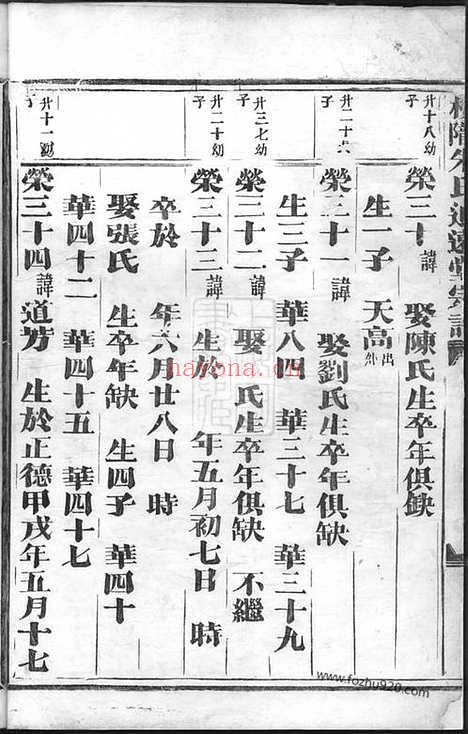 氏追遠堂宗譜
升十八幼子
榮三十 諱 娶陳氏生卒年俱缺
生一子 天高出外
升二十六子
榮三十一 諱 娶劉氏生卒年俱缺
生三子 華八四 華三十七 華三十九
升三七幼子
榮三十二 諱 娶 氏生卒年俱缺 不繼
升二十幼子
榮三十三 諱 生於 年五月初七日 時
卒於 年六月廿八日 時
娶張氏 生卒年缺 生四子 華四十
華四十二 華四十五 華四十七
升十一幼子
榮三十四 諱 道芳 生於正德甲戌年五月十七
nayona.cn
www.fozhu920.com